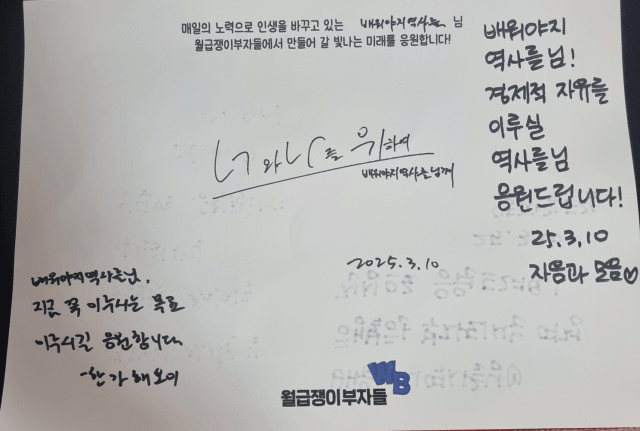 매일의 노력으로 인생을 바꾸고 있는 배워야지역사를 님
월급쟁이부자들에서 만들어 갈 빛나는 미래를 응원합니다!
너와나를 위하여
배워야지역사를님께
2025.3.10
배워야지
역사를님!
경제적 자유를
이루실
역사를님
응원드립니다!
25.3.10
자음과 모음♡
배워야지역사를님,
지금 꼭 이루시는 목표
이루시길 응원합니다
-한가해보이
WB
월급쟁이부자들